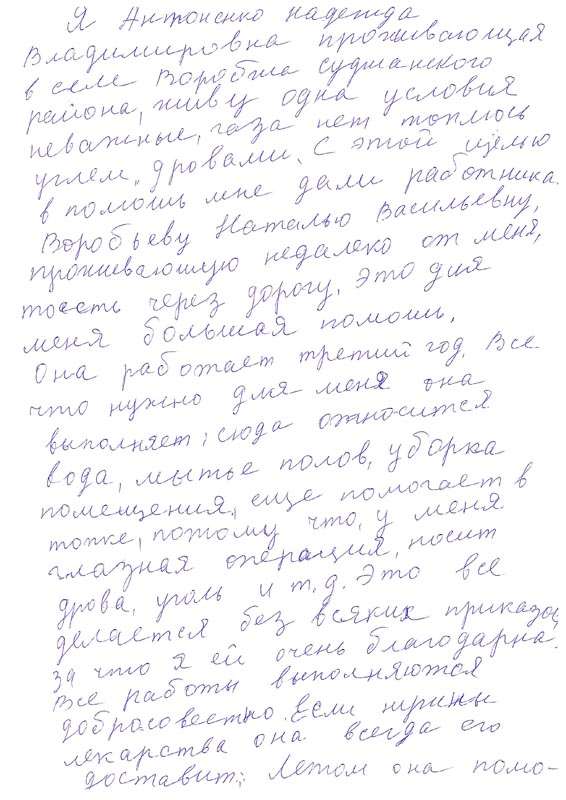 Я Антоненко Надежда
Владимировна проживающая
в селе Воробжа суджанского
района, живу одна условия
неважные, газа нет топлюсь
углем, дровами. С этой целью
в помошь мне дали работника.
Воробьеву Наталью Васильевну,
проживаюшую недалеко от меня,
тоесть через дорогу. Это для
меня большая помошь.
Она работает третий год. Все
что нужно для меня она
выполняет; сюда относится
вода, мытье полов, уборка
помещения, еще помогает в
топке, потому что, у меня
глазная операция, носит
дрова, уголь и т.д. Это все
делается без всяких приказов,
за что я ей очень благодарна.
Все работы выполняются
добросовестно. Если нужны
лекарства она всегда его
доставит; Летом она помо-